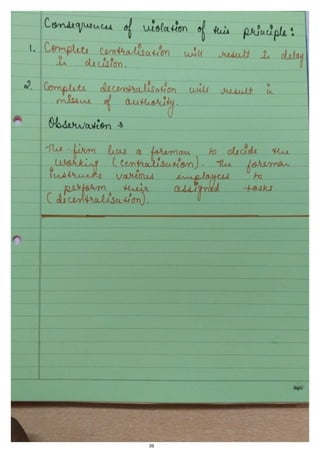 Consequences of violation of this principle:
1. Complete centralisation will result in delay
in decision.
2. Complete decentralisation will result in
misuse of authority.
Observation →
The firm has a foreman, to decide the
working (centralisation). The foreman
instructs various employees to
perform their assigned tasks
(decentralisation).